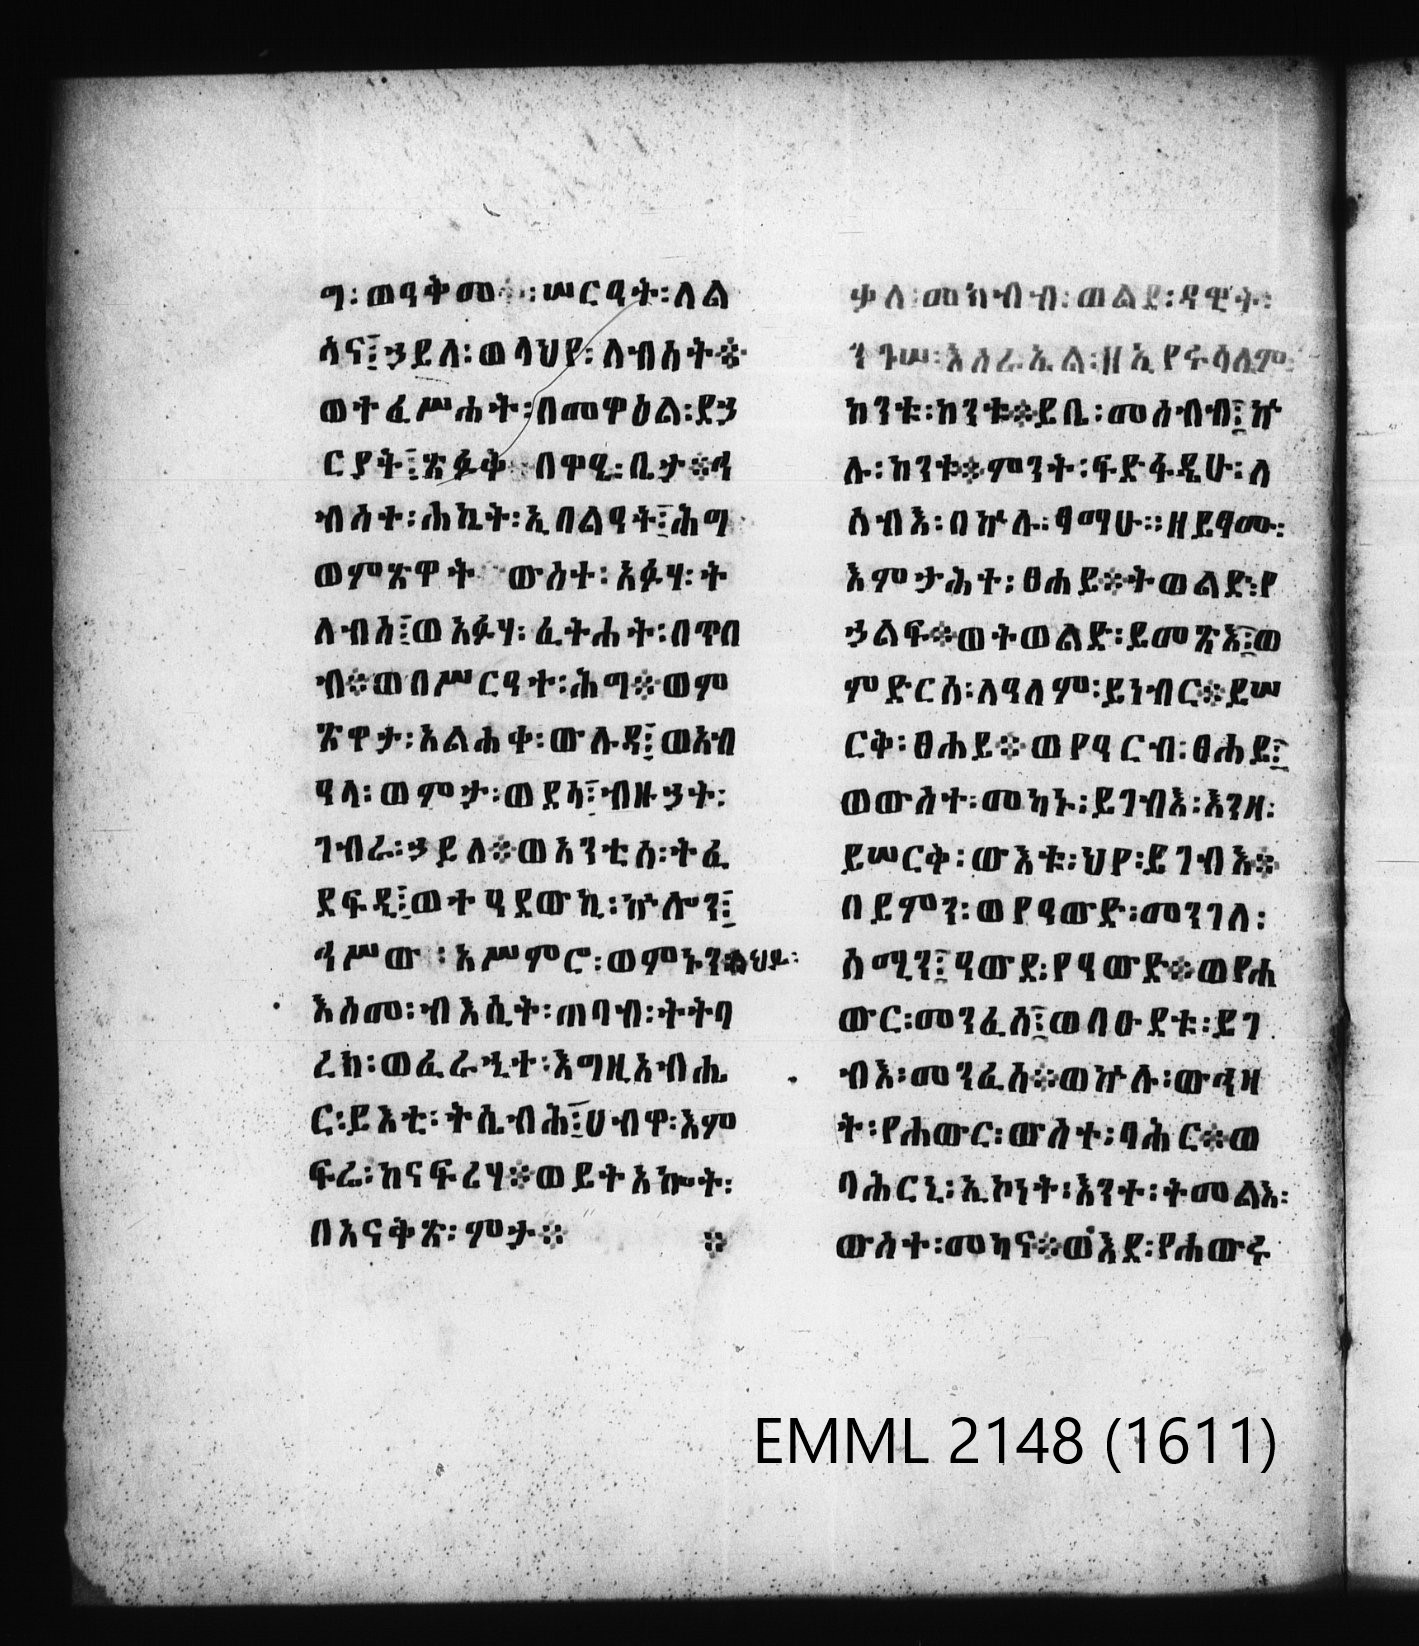 ግ፡ወዓቅመ፡ሠርዓት፡ለል
ሳና፤ኃይለ፡ወላህየ፡ለብሰት።
ወተፈሥሐት፡በመዋዕል፡ደኃ
ርያት፤ጽፉቅ በጥዒ፡ቤታ።ዳ
ብሰተ፡ሐኬት፡ኢበልዓት፤ሕግ
ወምጽዋት ውስተ፡አፉሃ፡ት
ለብስ፤ወአፉሃ፡ፈትሐት፡በጥበ
ብ።ወበሥርዓተ፡ሕግ።ወም
ጽዋታ፡አልሐቀ፡ውሉዳ፤ወአብ
ዓላ፡ወምታ፡ወደሳ፤ብዙኃት፡
ገብራ፡ኃይለ።ወአንቲሰ፡ትፈ
ደፍዲ፤ወተዓደውኪ፡ኵሎን፤
ሓሥው፡አሥምሮ፡ወምኑን።ላህይ፡
እስመ፡ብእሲት፡ጠባብ፡ትትባ
ረክ፡ወፈራኂተ፡እግዚአብሔ
ር፡ይእቲ፡ትሴብሕ፤ሀብዋ፡እም
ፍሬ፡ከናፍሪሃ።ወይትአኰት፡
በአናቅጽ፡ምታ።
ቃለ፡መክብብ፡ወልደ፡ዳዊት፡
ንጉሠ፡እስራኤል፡ዘኢየሩሳሌም
ከንቱ፡ከንቱ።ይቤ፡መሰብብ፤ኵ
ሉ፡ከንቱ።ምንት፡ፍድፋዴሁ፡ለ
ሰብእ፡በኵሉ፡ፃማሁ፡፡ዘይፃሙ፡
እምታሕተ፡ፀሐይ።ትወልድ፡የ
ኃልፍ።ወትወልድ፡ይመጽእ፤ወ
ምድርሰ፡ለዓለም፡ይነብር።ይሠ
ርቅ፡ፀሐይ።ወየዓርብ፡ፀሐይ፤
ወውስተ፡መካኑ፡ይገብእ፡እንዘ፡
ይሠርቅ፡ውእቱ፡ህየ፡ይገብእ።
በይምን፡ወየዓውድ፡መንገለ፡
ሰሜን፤ዓውደ፡የዓውድ።ወየሐ
ውር፡መንፈስ፤ወበዑደቱ፡ይገ
ብእ፡መንፈስ።ወኵሉ፡ውሓዛ
ት፡የሐውር፡ውስተ፡ባሕር።ወ
ባሕርኒ፡ኢኮነት፡እንተ፡ትመልእ፡
ውስተ፡መካና።ወእደ፡የሐውሩ
EMML 2148 (1611)